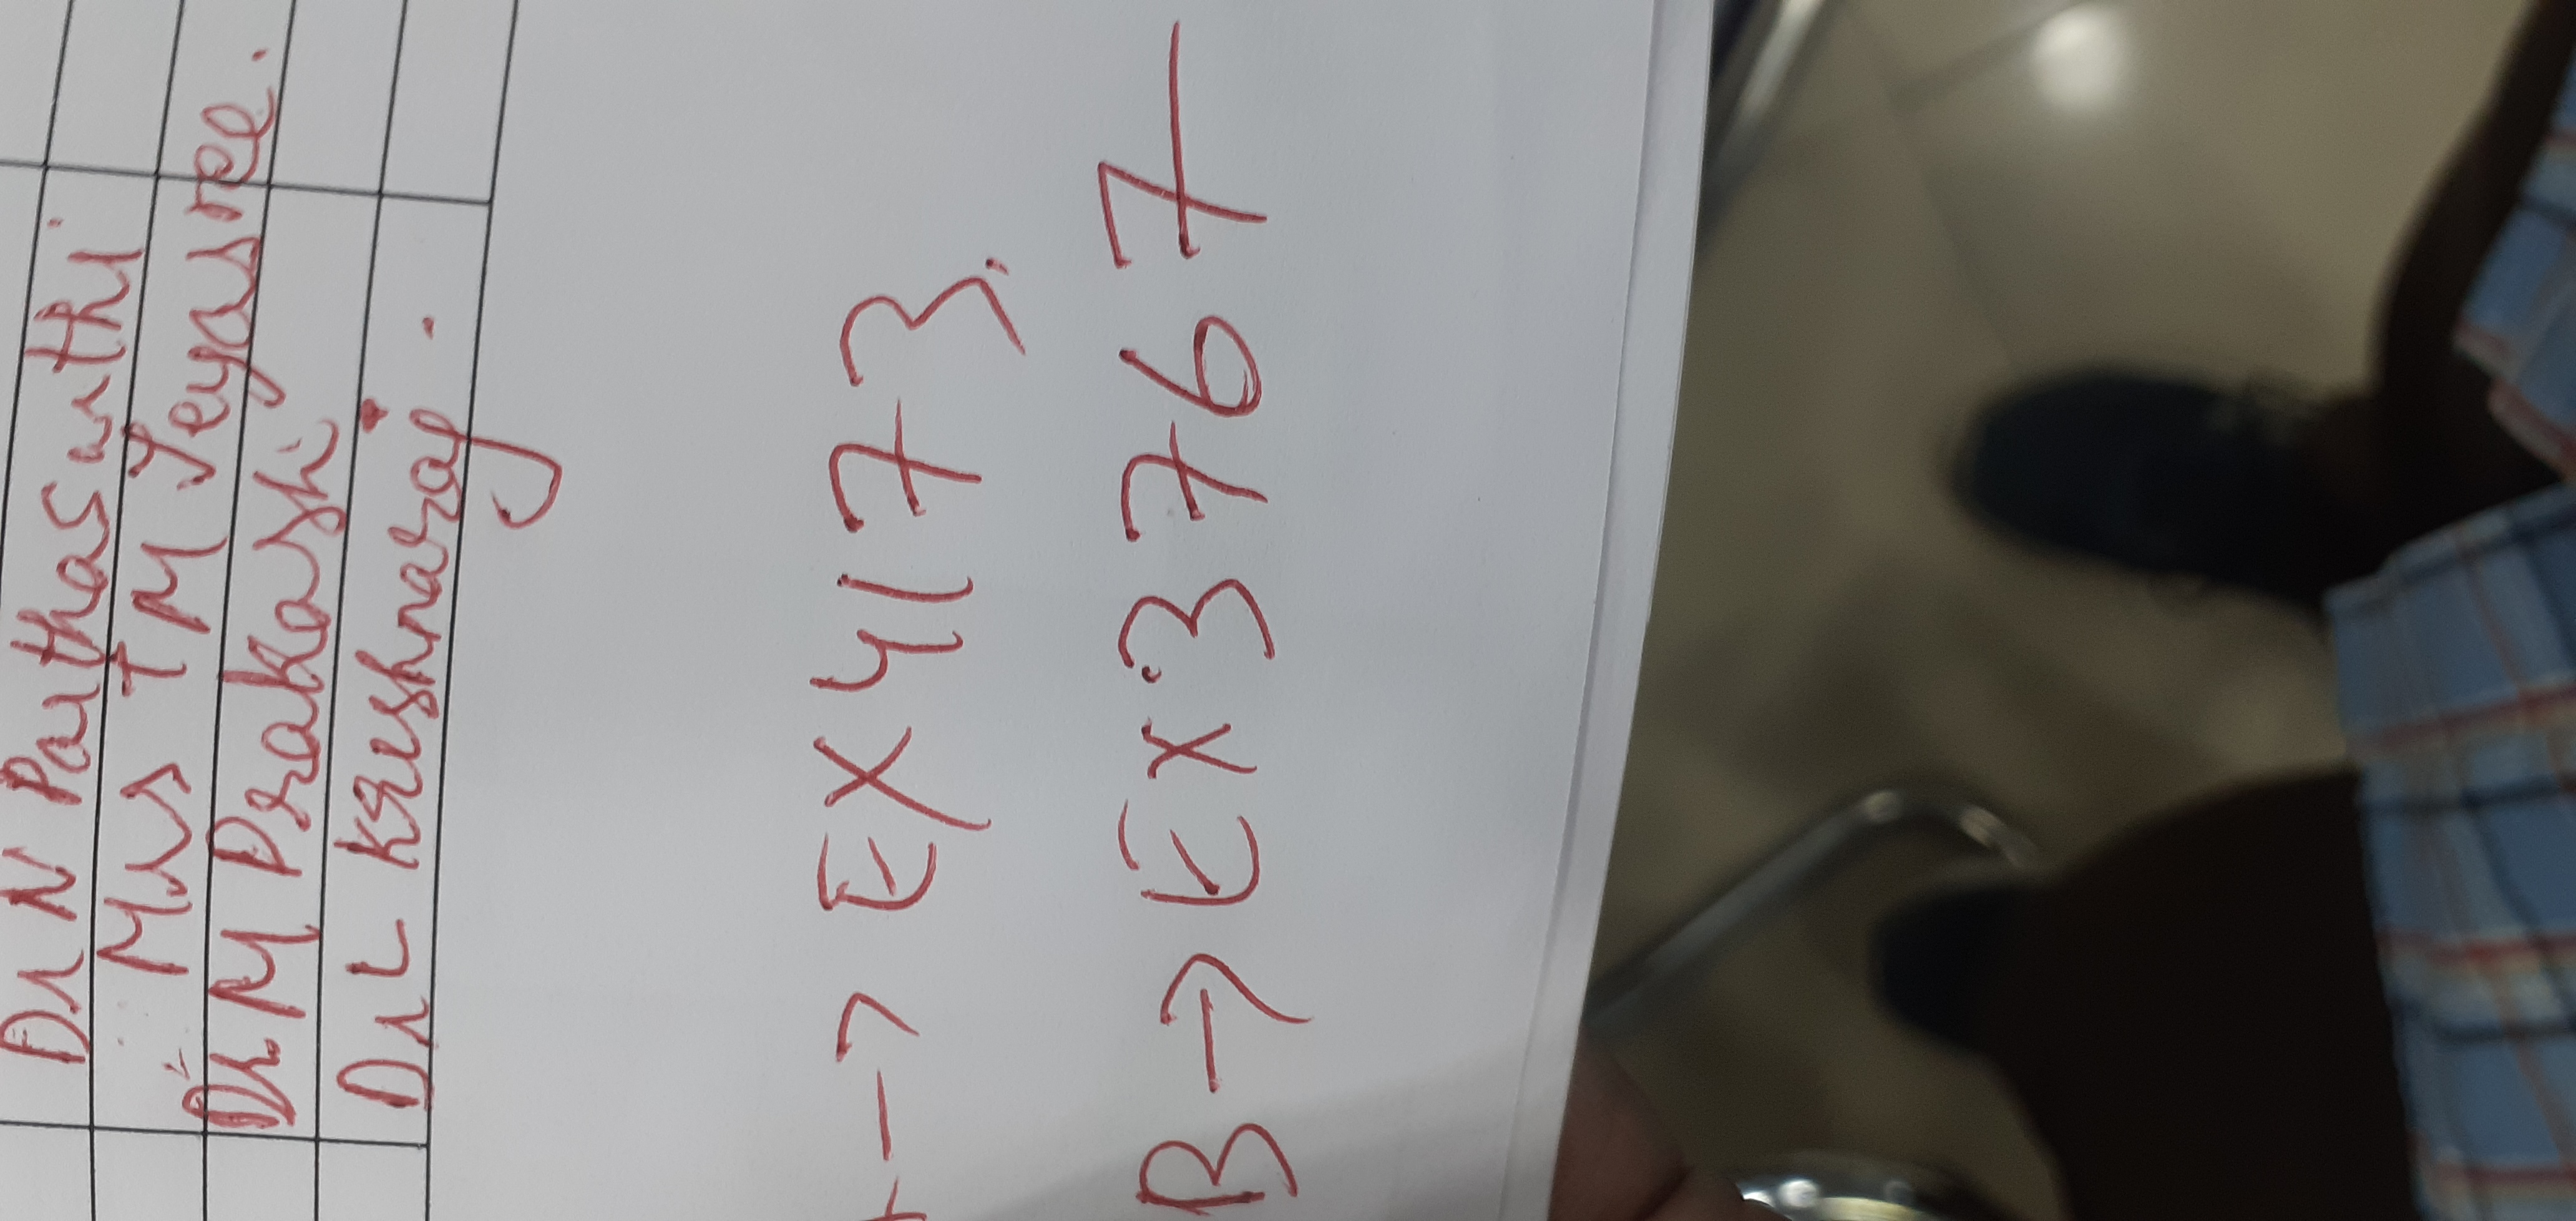 Dr N Parthasarthi
Mrs T M Jeyasree.
Dr. M Prakash
Dr L Krishnaraj.
→ EX4173.
B → EX3767